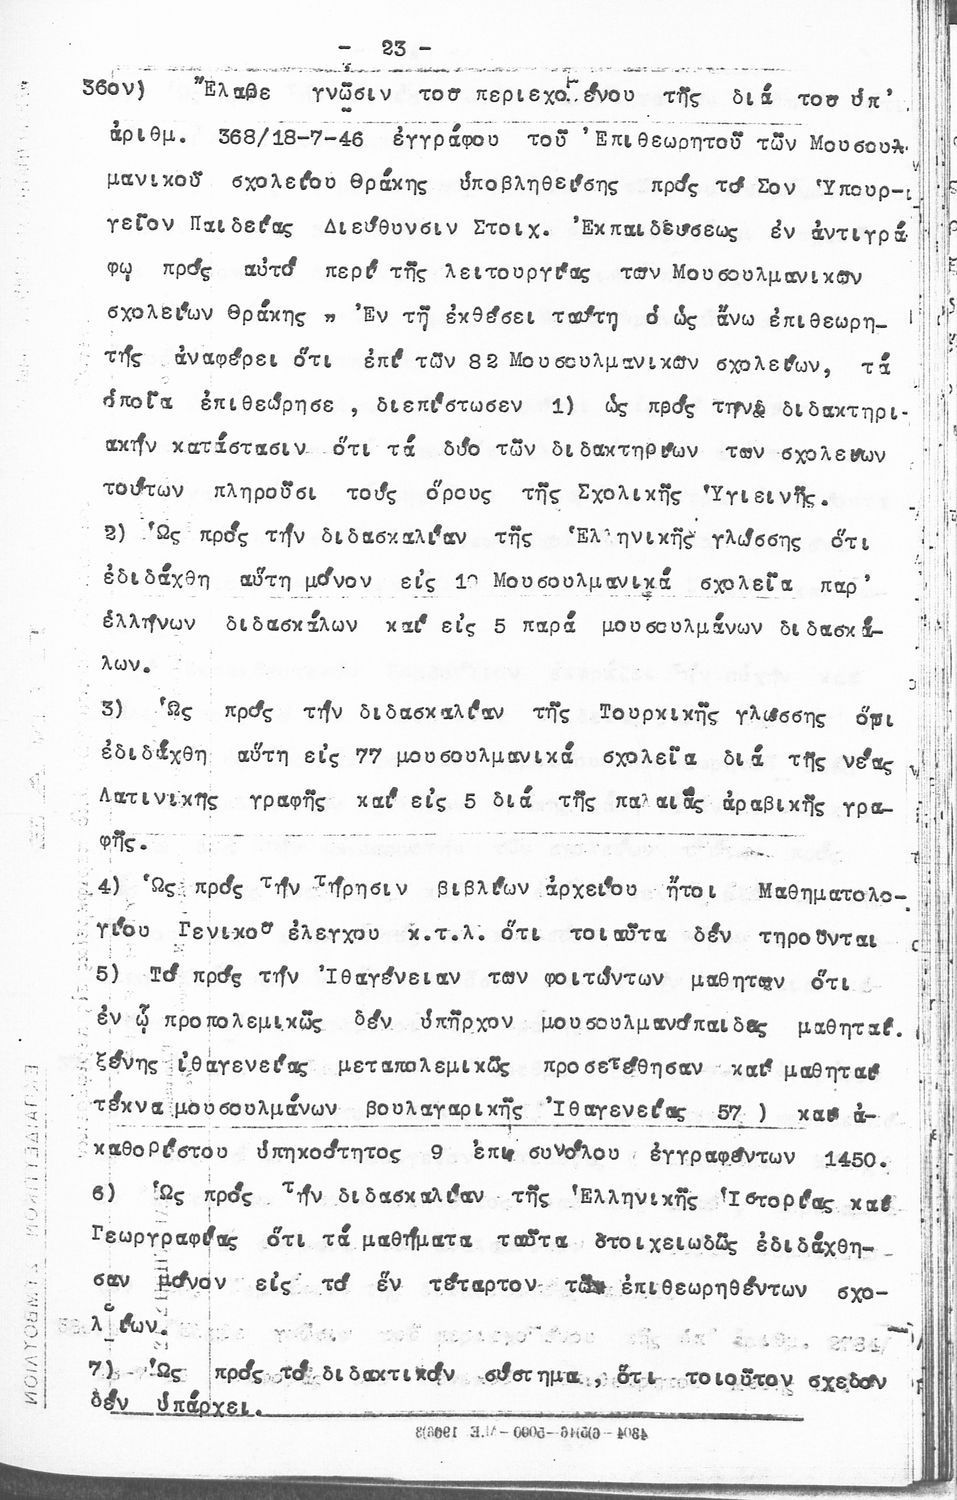 - 23 -
36ον) Ἔλαβε γνῶσιν τοῦ περιεχομένου τῆς διά τοῦ ὑπ'
ἀριθμ. 368/18-7-46 ἐγγράφου τοῦ Ἐπιθεωρητοῦ τῶν Μουσουλ-
μανικοῦ σχολείου Θράκης ὑποβληθείσης πρός τό Σον Ὑπουρ-
γεῖον Παιδείας Διεύθυνσιν Στοιχ. Ἐκπαιδεύσεως ἐν ἀντιγρά
φῳ πρός αὐτό περί τῆς λειτουργίας τῶν Μουσουλμανικῶν
σχολείων Θράκης „ Ἐν τῇ ἐκθέσει ταύτῃ ὁ ὡς ἄνω ἐπιθεωρη-
τής ἀναφέρει ὅτι ἐπί τῶν 82 Μουσουλμανικῶν σχολείων, τά
ὁποῖα ἐπιθεώρησε , διεπίστωσεν 1) ὡς πρός τήν διδακτηρι-
ακήν κατάστασιν ὅτι τά δύο τῶν διδακτηρίων τῶν σχολείων
τούτων πληροῦσι τούς ὅρους τῆς Σχολικῆς Ὑγιεινῆς.
2) Ὡς πρός τήν διδασκαλίαν τῆς Ἑλληνικῆς γλώσσης ὅτι
ἐδιδάχθη αὕτη μόνον εἰς Μουσουλμανικά σχολεῖα παρ'
ἑλλήνων διδασκάλων καί εἰς 5 παρά μουσουλμάνων διδασκά-
λων.
3) Ὡς πρός τήν διδασκαλίαν τῆς Τουρκικῆς γλώσσης ὅτι
ἐδιδάχθη αὕτη εἰς 77 μουσουλμανικά σχολεῖα διά τῆς νέας
Λατινικῆς γραφῆς καί εἰς 5 διά τῆς παλαιᾶς ἀραβικῆς γρα-
φῆς.
4) Ὡς πρός τήν τήρησιν βιβλίων ἀρχείου ἤτοι Μαθηματολο-
γίου Γενικοῦ ἐλέγχου κ.τ.λ. ὅτι τοιαῦτα δέν τηροῦνται
5) Τό πρός τήν Ἰθαγένειαν τῶν φοιτώντων μαθητῶν ὅτι
ἐν ᾧ προπολεμικῶς δέν ὑπῆρχον μουσουλμανόπαιδες μαθηταί.
ξένης ἰθαγενείας μεταπολεμικῶς προσετέθησαν καί μαθηταί
τέκνα μουσουλμάνων βουλαγαρικῆς Ἰθαγενείας 57 ) καί ἀ-
καθορίστου ὑπηκοότητος 9 ἐπί συνόλου ἐγγραφέντων 1450.
6) Ὡς πρός τήν διδασκαλίαν τῆς Ἑλληνικῆς Ἱστορίας καί
Γεωργραφίας ὅτι τά μαθήματα ταῦτα στοιχειωδῶς ἐδιδάχθη-
σαν μόνον εἰς τό ἕν τέταρτον τῶν ἐπιθεωρηθέντων σχο-
λείων.
7) Ὡς πρός τό διδακτικόν σύστημα, ὅτι τοιοῦτον σχεδόν
δέν ὑπάρχει.